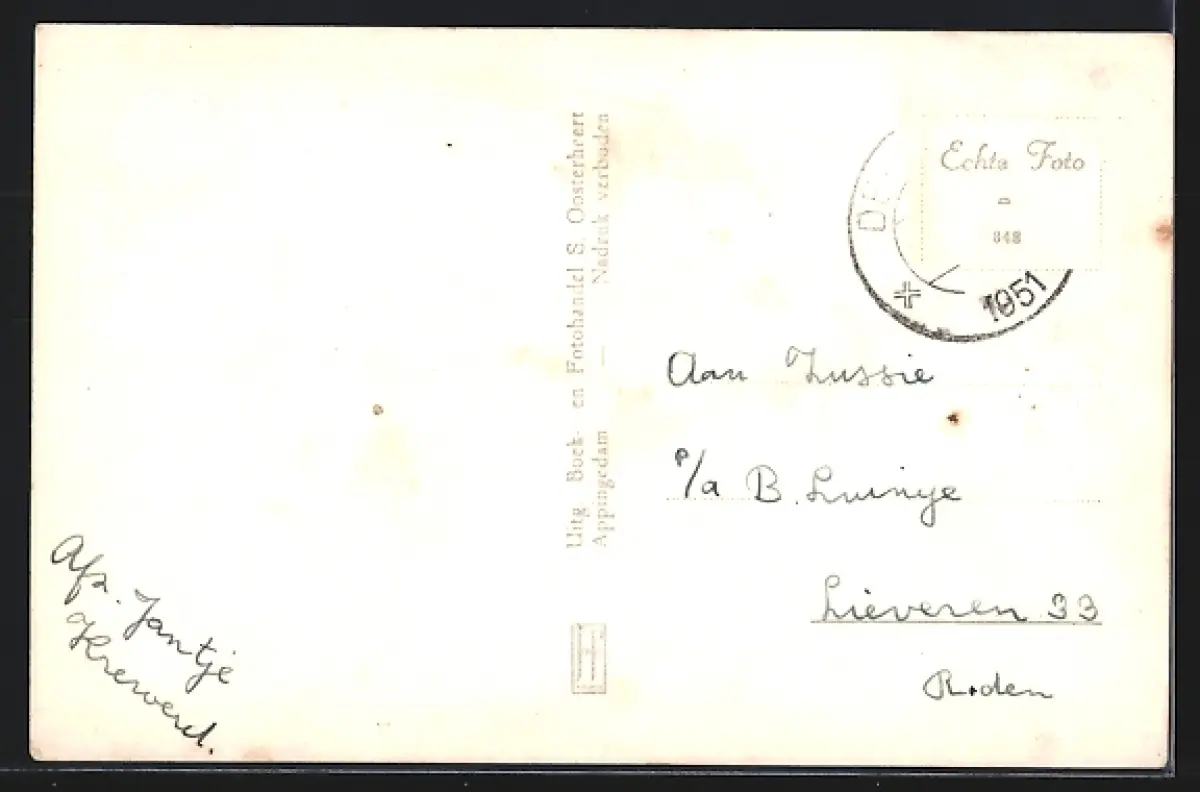 Uitg. Boek- en Fotohandel S. Oosterheert
Appingedam — Nadruk verboden
Echte Foto
848
DE
1951
Aan Zussie
p/a B. Luinge
Lieveren 33
Roden
Afz. Jantje